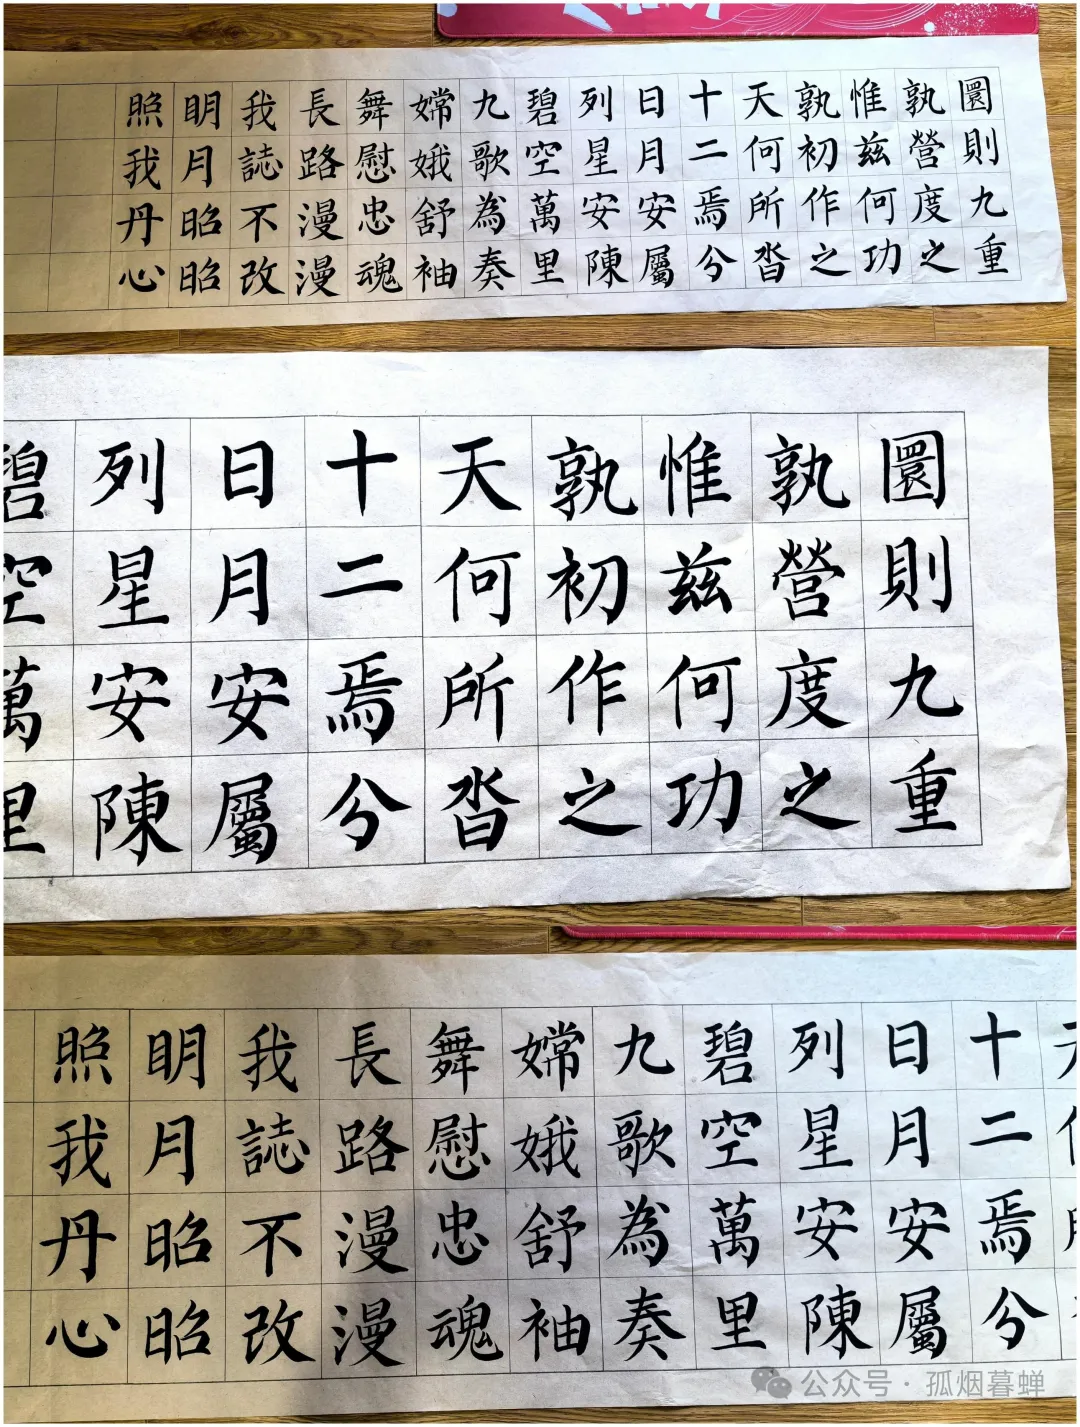 圜則九重
孰營度之
惟兹何功
孰初作之
天何所沓
十二焉兮
日月安屬
列星安陳
碧空萬里
九歌為奏
嫦娥舒袖
舞慰忠魂
長路漫漫
我誌不改
明月昭昭
照我丹心
圜則九重
孰營度之
惟兹何功
孰初作之
天何所沓
十二焉兮
日月安屬
列星安陳
碧空萬里
十二焉兮
日月安屬
列星安陳
碧空萬里
九歌為奏
嫦娥舒袖
舞慰忠魂
長路漫漫
我誌不改
明月昭昭
照我丹心
公众号·孤烟暮蝉